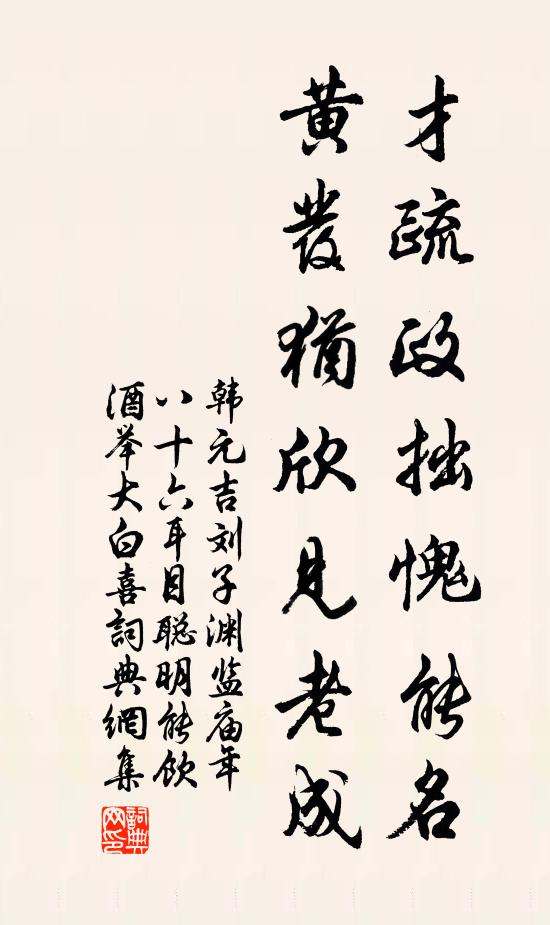 才疏政拙愧能名
黄发犹欣见老成
韩元吉刘子渊监庙年
八十六耳目聪明能饮
酒举大白喜詞典網集
詞典
网印